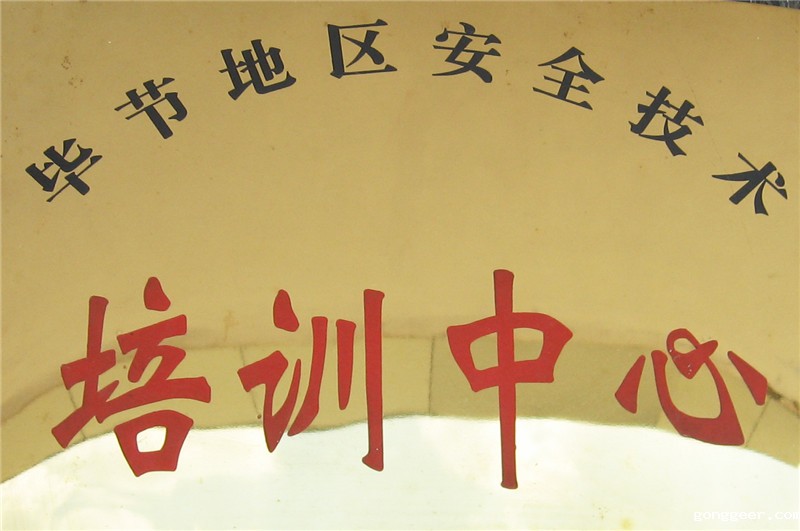 毕节地区安全技术
培训中心
gonggeer.com